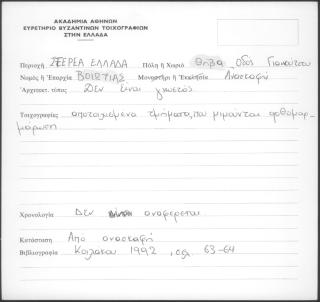 ΑΚΑΔΗΜΙΑ ΑΘΗΝΩΝ
ΕΥΡΕΤΗΡΙΟ ΒΥΖΑΝΤΙΝΩΝ ΤΟΙΧΟΓΡΑΦΙΩΝ
ΣΤΗΝ ΕΛΛΑΔΑ
Περιοχή ΣΤΕΡΕΑ ΕΛΛΑΔΑ Πόλη ἤ Χωριό Θήβα, Οδος
Νομός ἤ Ἐπαρχία ΒΟΙΩΤΙΑΣ Μοναστήρι ἤ Ἐκκλησία Ανασκαφή
Ἀρχιτεκτ. τύπος Δεν είναι γνωστός
Τοιχογραφίες αποτοιχισμένα τμήματα, που μιμούνται ορθομαρ-
μάρωση
Χρονολογία Δεν αναφέρεται
Κατάσταση Από ανασκαφή
Βιβλιογραφία Κοιλάκου 1992, σελ. 63-64